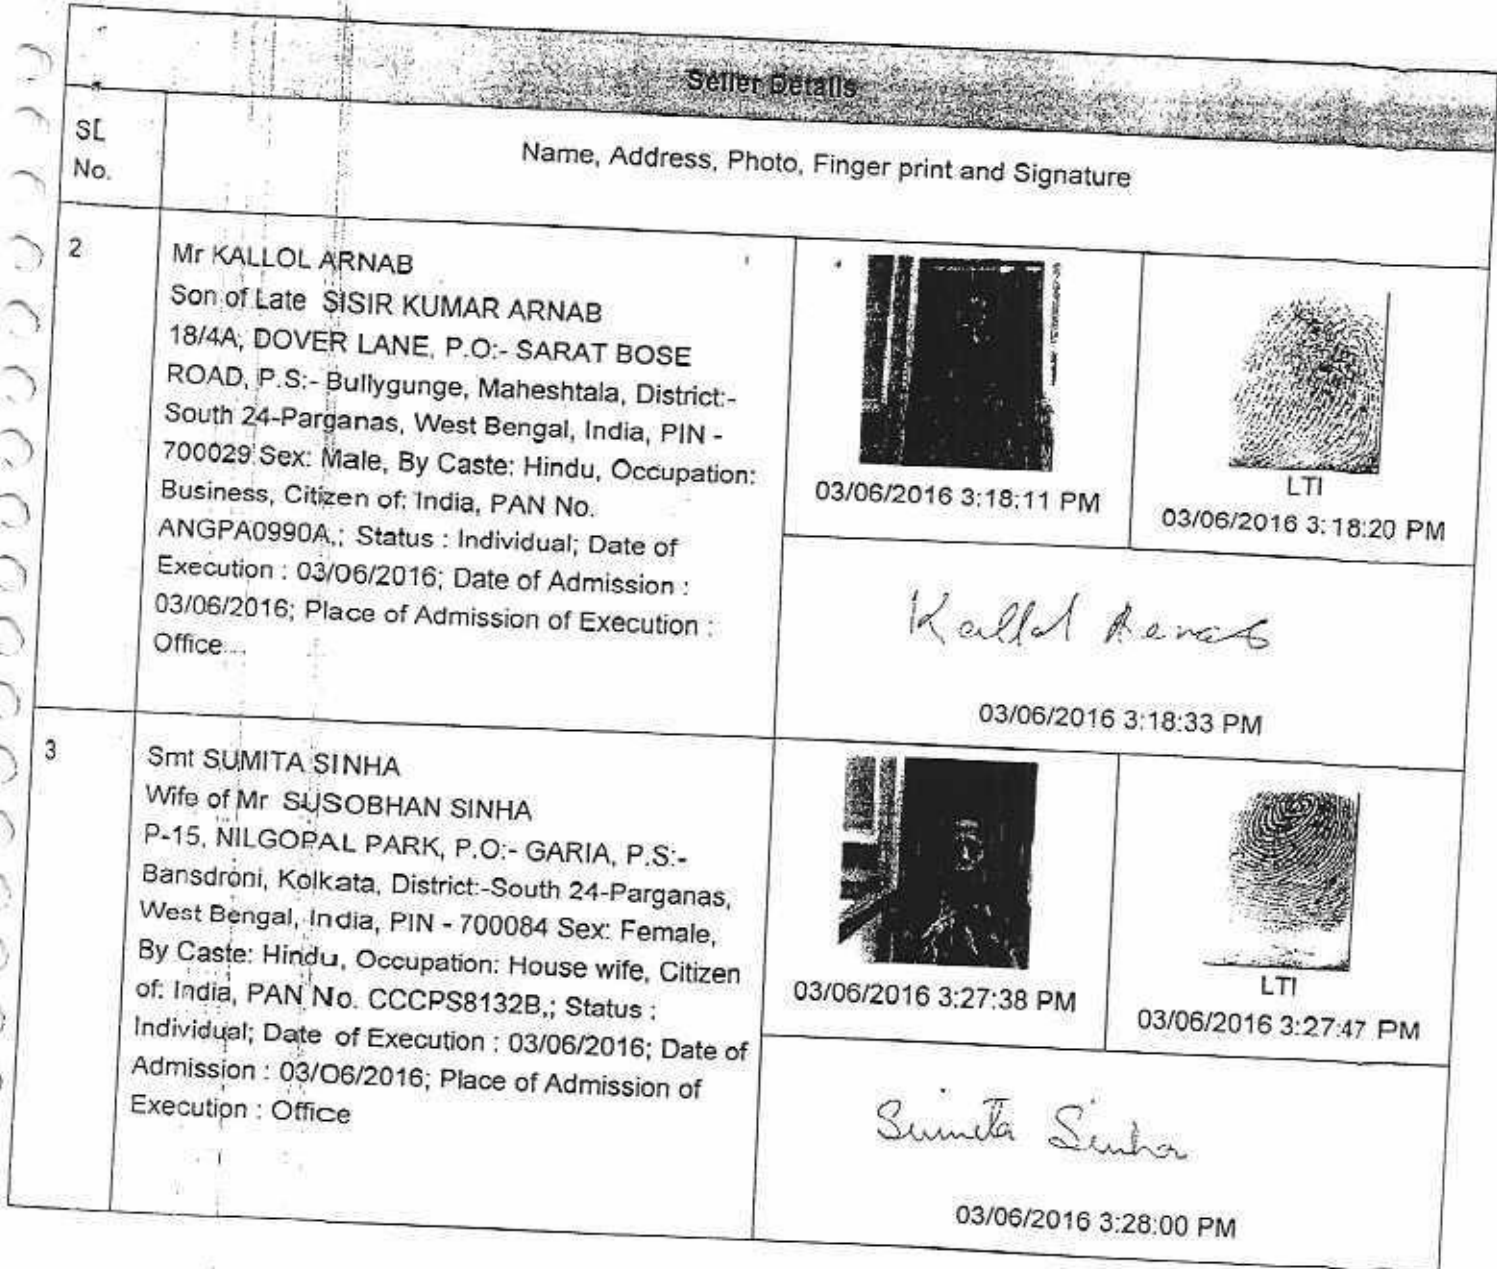 Seller Details
SL
No.
Name, Address, Photo, Finger print and Signature
2
Mr KALLOL ARNAB
Son of Late SISIR KUMAR ARNAB
18/4A, DOVER LANE, P.O:- SARAT BOSE
ROAD, P.S:- Bullygunge, Maheshtala, District:-
South 24-Parganas, West Bengal, India, PIN -
700029 Sex: Male, By Caste: Hindu, Occupation:
Business, Citizen of: India, PAN No.
ANGPA0990A,; Status : Individual; Date of
Execution : 03/06/2016; Date of Admission :
03/06/2016; Place of Admission of Execution :
Office
03/06/2016 3:18:11 PM
LTI
03/06/2016 3:18:20 PM
Kallol Arnab
03/06/2016 3:18:33 PM
3
Smt SUMITA SINHA
Wife of Mr SUSOBHAN SINHA
P-15, NILGOPAL PARK, P.O:- GARIA, P.S:-
Bansdroni, Kolkata, District:-South 24-Parganas,
West Bengal, India, PIN - 700084 Sex: Female,
By Caste: Hindu, Occupation: House wife, Citizen
of: India, PAN No. CCCPS8132B,; Status :
Individual; Date of Execution : 03/06/2016; Date of
Admission : 03/06/2016; Place of Admission of
Execution : Office
03/06/2016 3:27:38 PM
LTI
03/06/2016 3:27:47 PM
Sumita Sinha
03/06/2016 3:28:00 PM